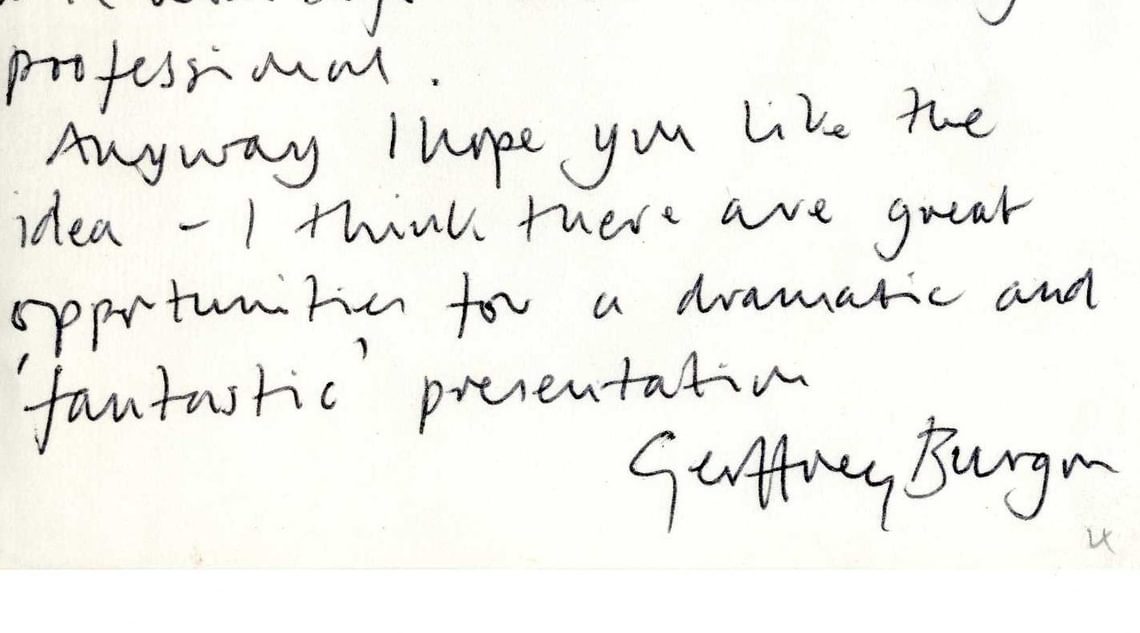 professional.
Anyway I hope you like the
idea - I think there are great
opportunities for a dramatic and
'fantastic' presentation
Geoffrey Burgon
4